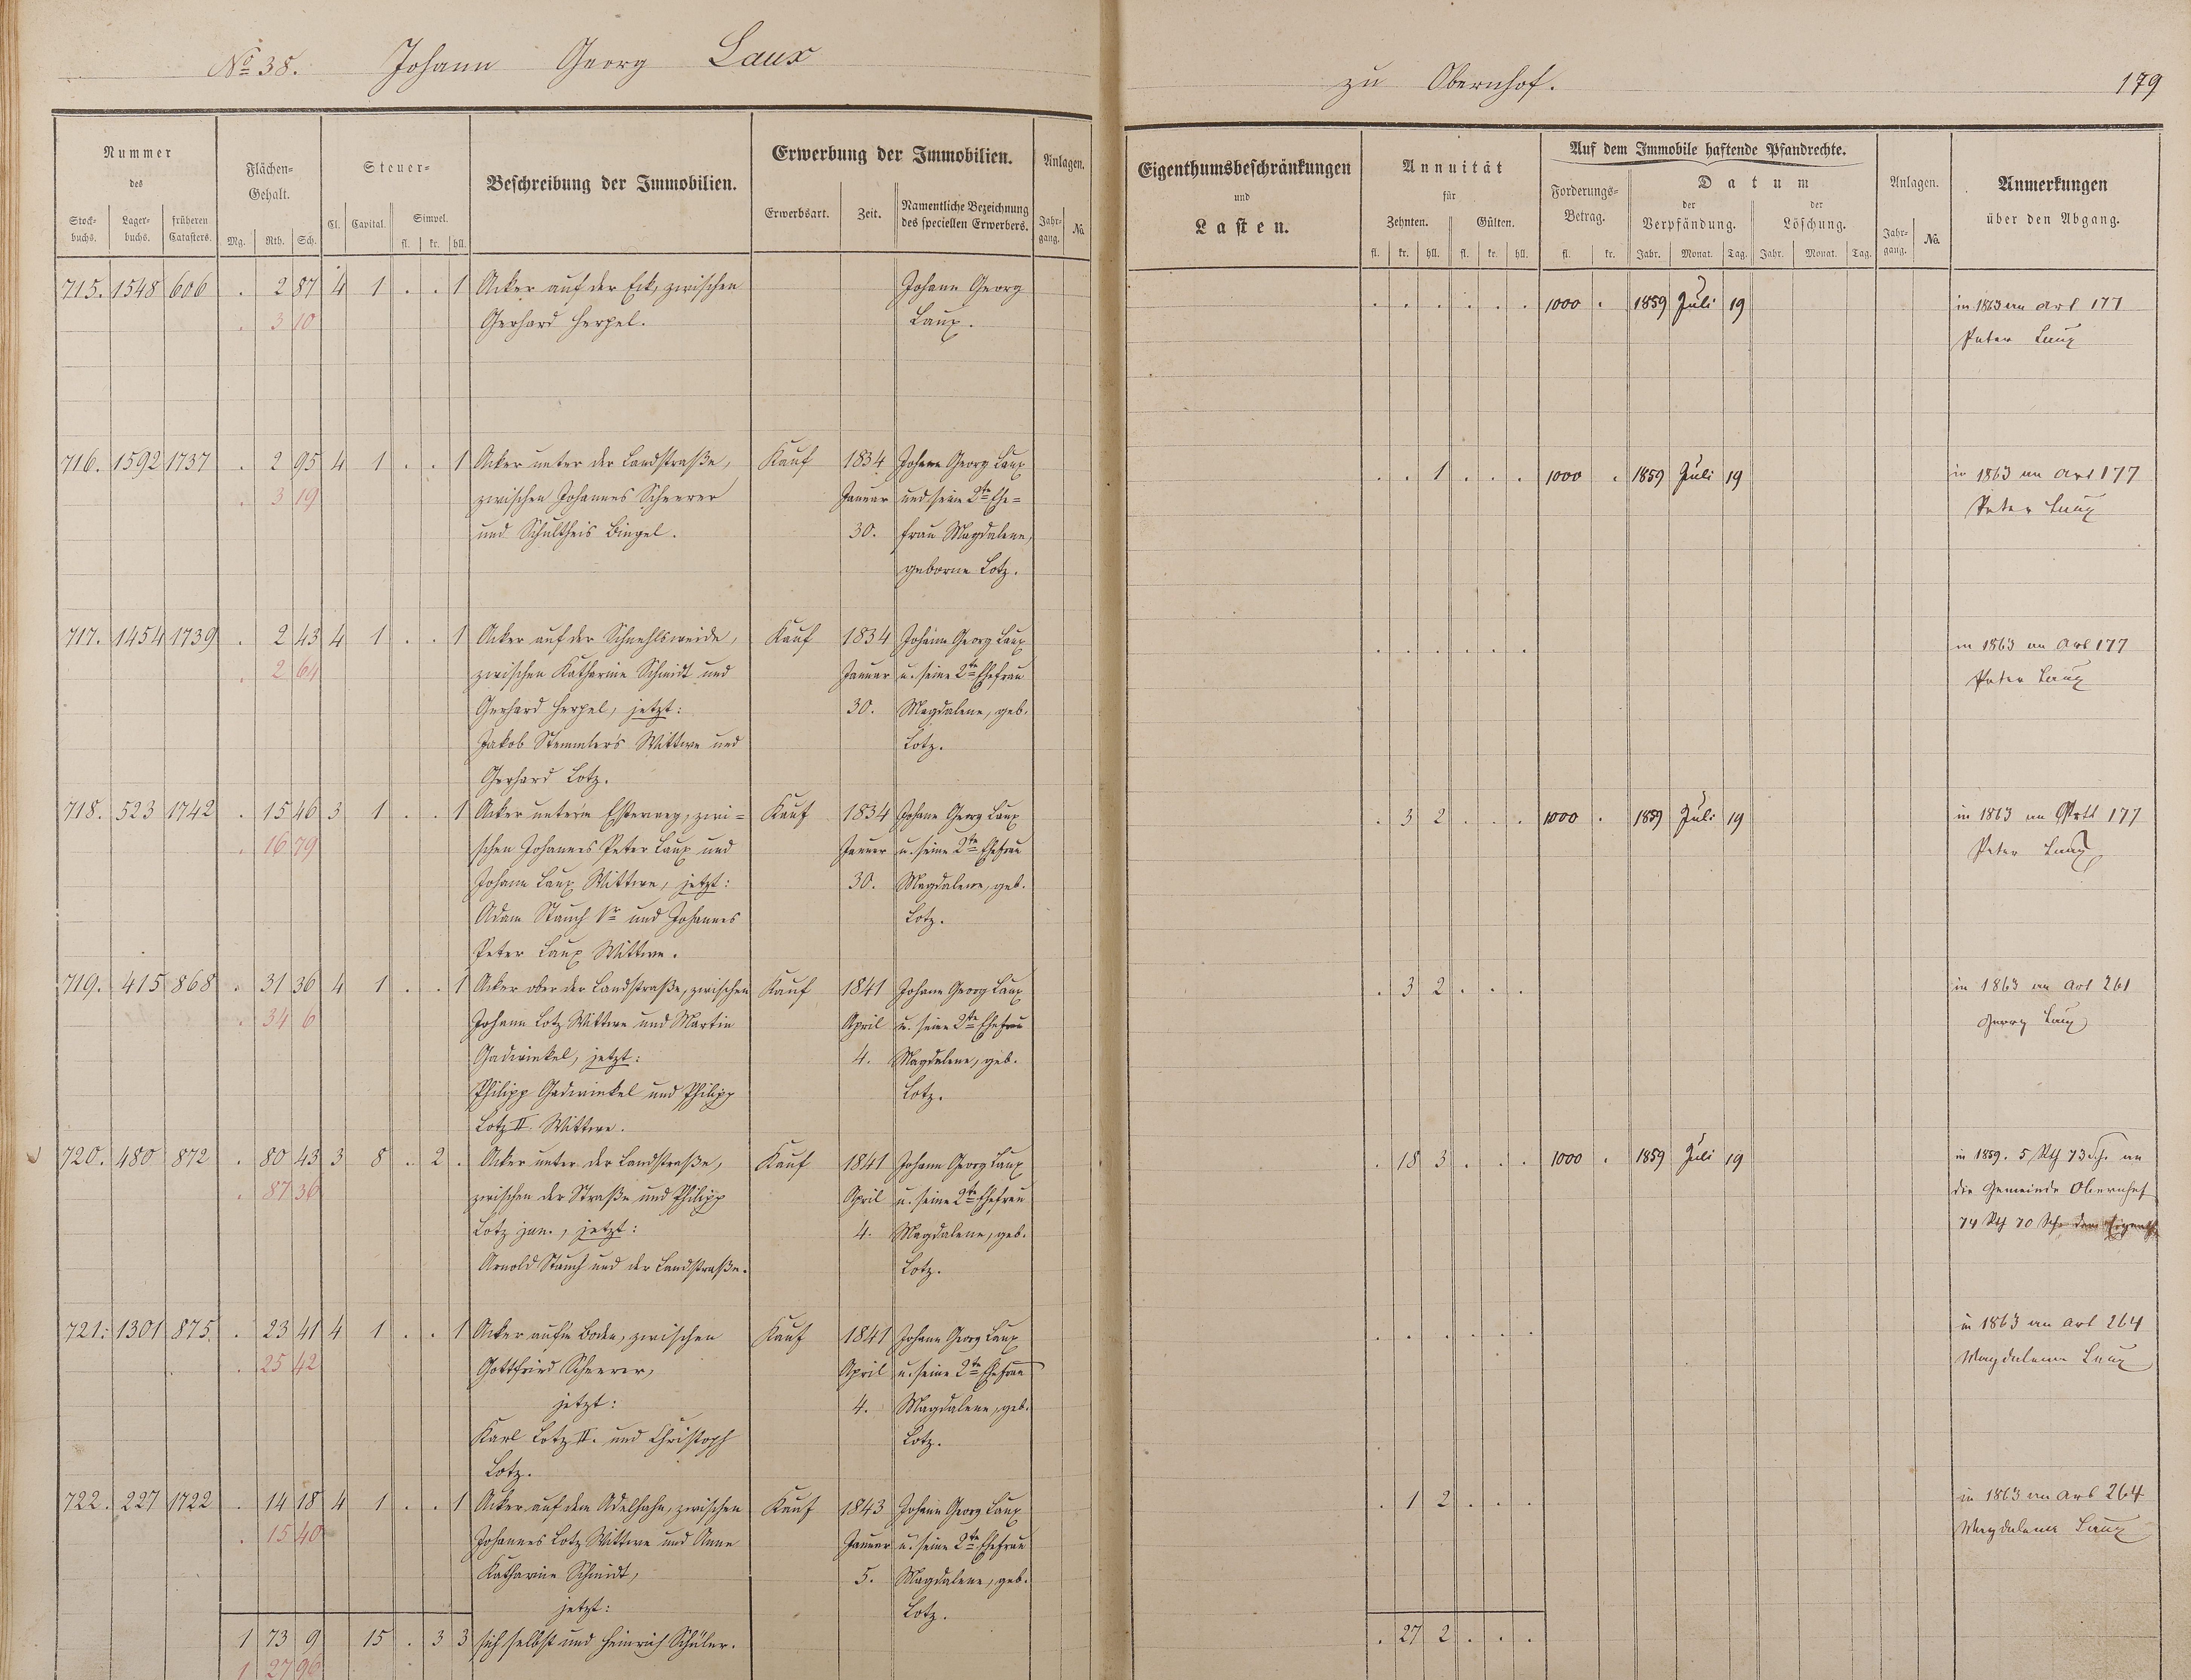 No 38. Johann Georg Laux
zu Obernhof. 179
Nummer des
Stockbuchs. Lagerbuchs. früheren Catasters.
Flächen-Gehalt.
Mg. Rth. Sch.
Steuer-
Cl. Capital. Simpel.
fl. kr. hll.
Beschreibung der Immobilien.
Erwerbung der Immobilien.
Erwerbsart. Zeit. Namentliche Bezeichnung des speciellen Erwerbers.
Anlagen.
Jahrgang. No.
Eigenthumsbeschränkungen und Lasten.
Annuität für
Zehnten. Gülten.
fl. kr. hll. fl. kr. hll.
Auf dem Immobile haftende Pfandrechte.
Forderungs-Betrag.
fl. kr.
Datum
der Verpfändung. der Löschung.
Jahr. Monat. Tag. Jahr. Monat. Tag.
Anlagen.
Jahrgang. No.
Anmerkungen über den Abgang.
715. 1548 606 . 2 87 4 1 . . 1 Acker auf der Eck, zwischen Johann Georg . . . . . . 1000 . 1859 Juli 19 in 1863 an Art 177
. 3 10 Gerhard Herpel. Laux. Peter Laux
716. 1592 1737 . 2 95 4 1 . . 1 Acker unter der Landstraße, Kauf 1834 Johann Georg Laux . . 1 . . . 1000 . 1859 Juli 19 in 1863 an Art 177
. 3 19 zwischen Johannes Scheerer Januar und seine 2te Ehe= Peter Laux
und Schultheis Bingel. 30. frau Magdalene,
geborne Lotz.
717. 1454 1739 . 2 43 4 1 . . 1 Acker auf der Schnehlsweide, Kauf 1834 Johann Georg Laux . . . . . . in 1863 an Art 177
. 2 64 zwischen Katharine Schmidt und Januar u. seine 2te Ehefrau Peter Laux
Gerhard Herpel, jetzt: 30. Magdalene, geb.
Jakob Stemmler's Wittwe und Lotz.
Gerhard Lotz.
718. 523 1742 . 15 46 3 1 . . 1 Acker unterm Esterweg, zwi= Kauf 1834 Johann Georg Laux . 3 2 . . . 1000 . 1859 Juli 19 in 1863 an Artl 177
. 16 79 schen Johannes Peter Laux und Januar u. seine 2te Ehefrau Peter Laux
Johann Laux Wittwe, jetzt: 30. Magdalene, geb.
Adam Stauch 1r und Johannes Lotz.
Peter Laux Wittwe.
719. 415 868 . 31 36 4 1 . . 1 Acker ober der Landstraße, zwischen Kauf 1841 Johann Georg Laux . 3 2 . . . in 1863 an Art 261
. 34 6 Johann Lotz Wittwe und Martin April u. seine 2te Ehefrau Georg Laux
Gadwinkel, jetzt: 4. Magdalene, geb.
Philipp Gadwinkel und Philipp Lotz.
Lotz II Wittwe.
720. 480 872 . 80 43 3 8 . 2 . Acker unter der Landstraße, Kauf 1841 Johann Georg Laux . 18 3 . . . 1000 . 1859 Juli 19 in 1859. 5 Rth 73 Sch. an
. 87 36 zwischen der Straße und Philipp April u. seine 2te Ehefrau die Gemeinde Obernhof
Lotz jun., jetzt: 4. Magdalene, geb. 74 Rth 70 Sch dem
Arnold Stauch und der Landstraße. Lotz.
721. 1301 875. . 23 41 4 1 . . 1 Acker aufm Boden, zwischen Kauf 1841 Johann Georg Laux . . . . . . in 1863 an Art 264
. 25 42 Gottfried Scheerer, April u. seine 2te Ehefrau Magdalena Laux
jetzt: 4. Magdalene, geb.
Karl Lotz II. und Christoph Lotz.
Lotz.
722. 227 1722 . 14 18 4 1 . . 1 Acker auf dem Adelhahn, zwischen Kauf 1843 Johann Georg Laux . 1 2 . . . in 1863 an Art 264
. 15 40 Johannes Lotz Wittwe und Anne Januar u. seine 2te Ehefrau Magdalena Laux
Katharine Schmidt, 5. Magdalene, geb.
jetzt: Lotz.
1 73 9 15 . 3 3 sich selbst und Heinrich Schüler. . 27 2 . . .
1 27 96